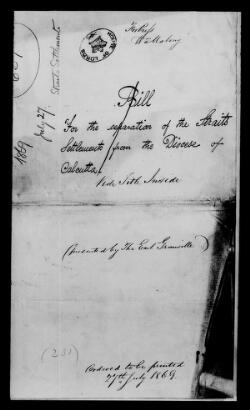 Straits Settlements
July 27.
1869
Bill
For the separation of the Straits
Settlements from the Diocese of
Calcutta.
Vide Title Inside
(Presented by The Earl Granville)
(231)
Ordered to be printed
27th July 1869.